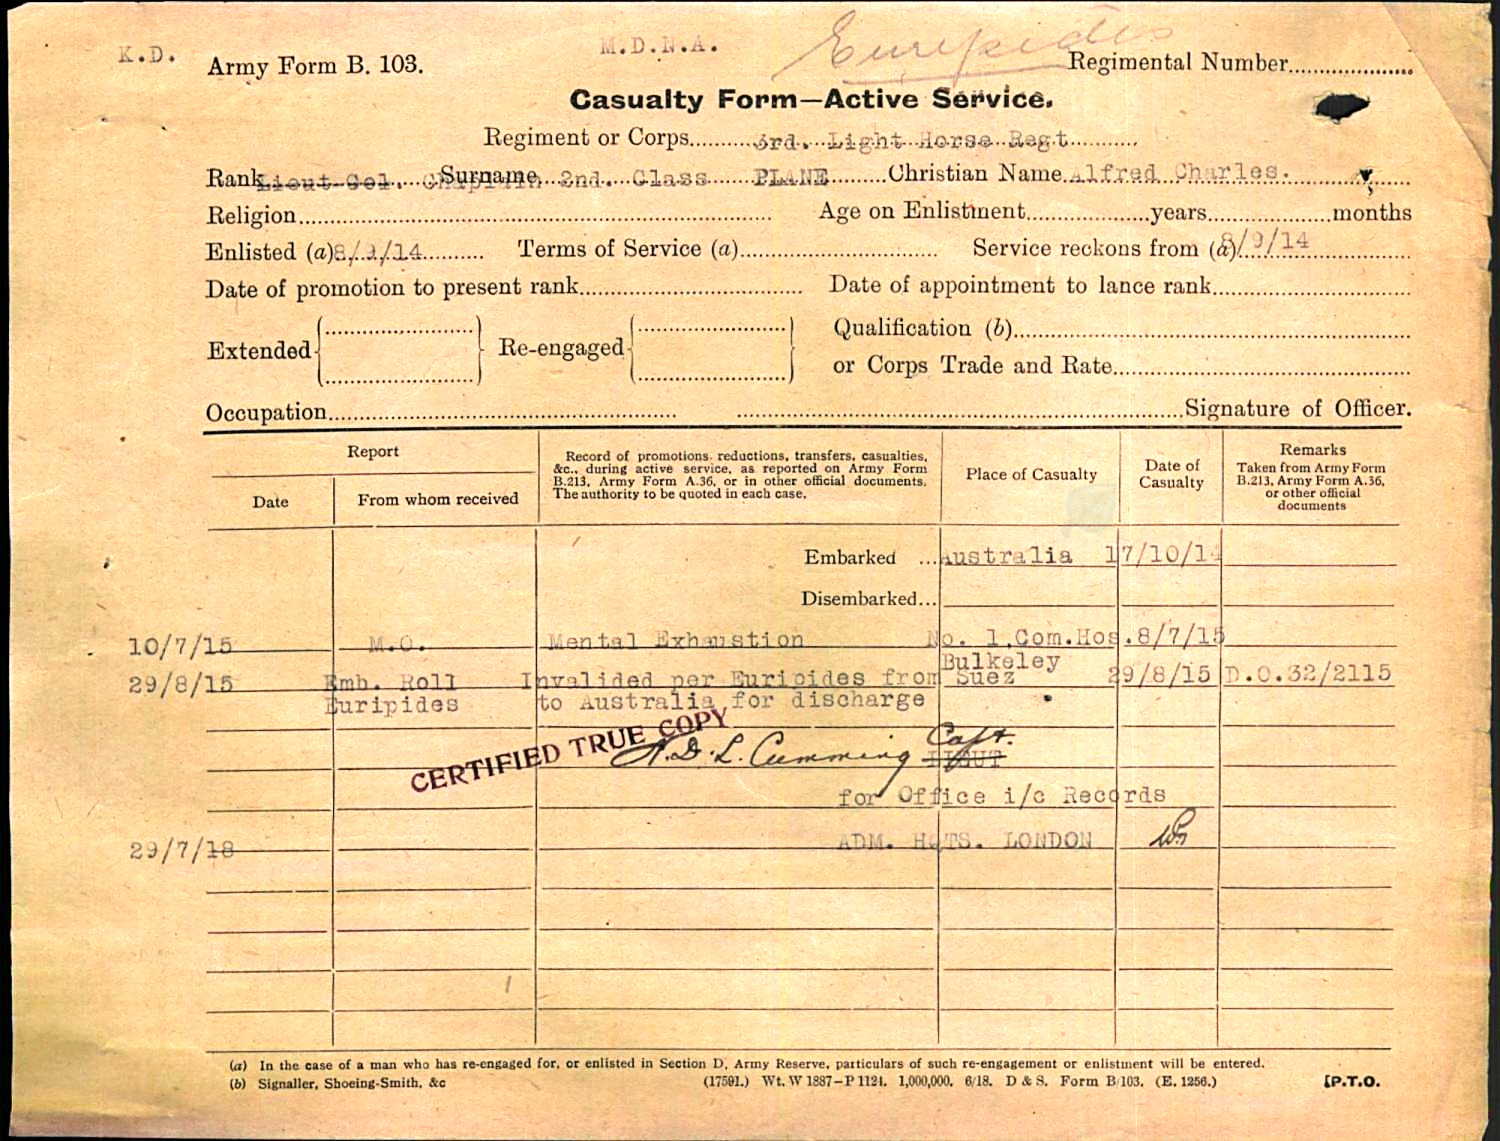 K.D.
M.D.N.A.
Euripides
Army Form B. 103.
Regimental Number
Casualty Form—Active Service.
Regiment or Corps 3rd. Light Horse Regt
Rank Lieut-Col. Chaplain 2nd. Class Surname PLANE Christian Name Alfred Charles.
Religion Age on Enlistment years months
Enlisted (a) 8/9/14 Terms of Service (a) Service reckons from (a) 8/9/14
Date of promotion to present rank Date of appointment to lance rank
Extended Re-engaged Qualification (b)
or Corps Trade and Rate
Occupation Signature of Officer.
Report
Date
From whom received
Record of promotions, reductions, transfers, casualties,
&c., during active service, as reported on Army Form
B.213, Army Form A.36, or in other official documents.
The authority to be quoted in each case.
Place of Casualty
Date of
Casualty
Remarks
Taken from Army Form
B.213, Army Form A.36,
or other official
documents
Embarked ... Australia 17/10/14
Disembarked...
10/7/15 M.O. Mental Exhaustion No. 1.Com.Hos. 8/7/15
Bulkeley
29/8/15 Emb. Roll Invalided per Euripides from Suez 29/8/15 D.O.32/2115
Euripides to Australia for discharge
CERTIFIED TRUE COPY
A.D.L. Cumming Capt.
LIEUT
for Office i/c Records
29/7/18 ADM. HQTS. LONDON
(a) In the case of a man who has re-engaged for, or enlisted in Section D, Army Reserve, particulars of such re-engagement or enlistment will be entered.
(b) Signaller, Shoeing-Smith, &c
(17591.) Wt. W 1887—P 1124. 1,000,000. 6/18. D & S. Form B/103. (E. 1256.)
[P.T.O.